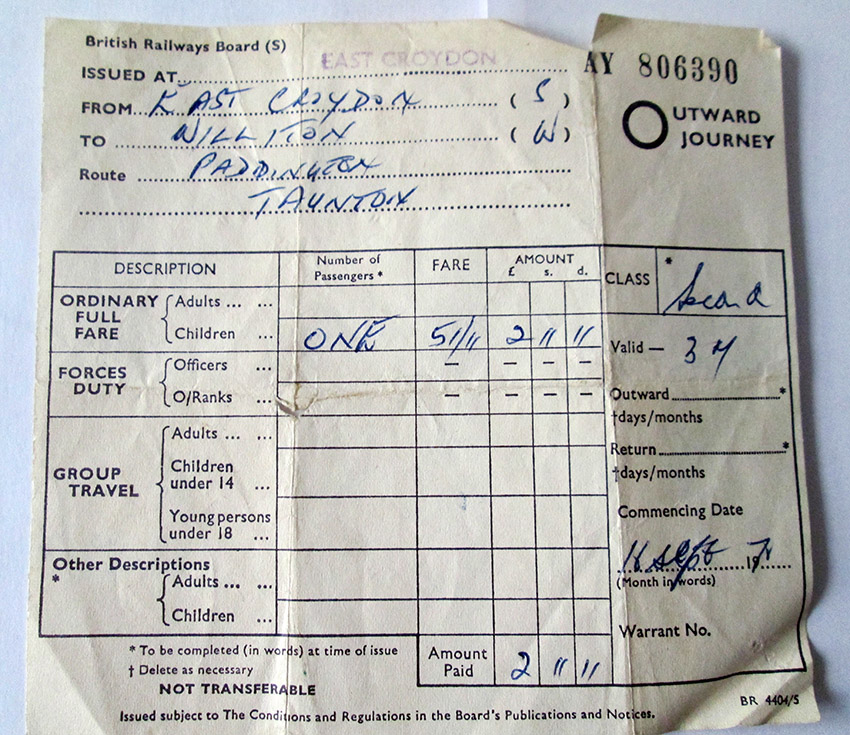 British Railways Board (S)
EAST CROYDON
AY 806390
ISSUED AT
FROM EAST CROYDON (S)
TO WILLITON (W)
Route PADDINGTON
TAUNTON
OUTWARD JOURNEY
DESCRIPTION Number of Passengers * FARE AMOUNT £ s. d.
CLASS * Second
ORDINARY FULL FARE
Adults ... ...
Children ... ONE 51/11 2 11 11
Valid — 3
FORCES DUTY
Officers ... – – – –
O/Ranks ... – – – –
Outward *
†days/months
Return *
†days/months
GROUP TRAVEL
Adults ... ...
Children under 14 ...
Young persons under 18 ...
Commencing Date
Sept 19
(Month in words)
Other Descriptions
*
Adults ... ...
Children ...
Warrant No.
* To be completed (in words) at time of issue
† Delete as necessary
NOT TRANSFERABLE
Amount Paid 2 11 11
BR 4404/5
Issued subject to The Conditions and Regulations in the Board's Publications and Notices.